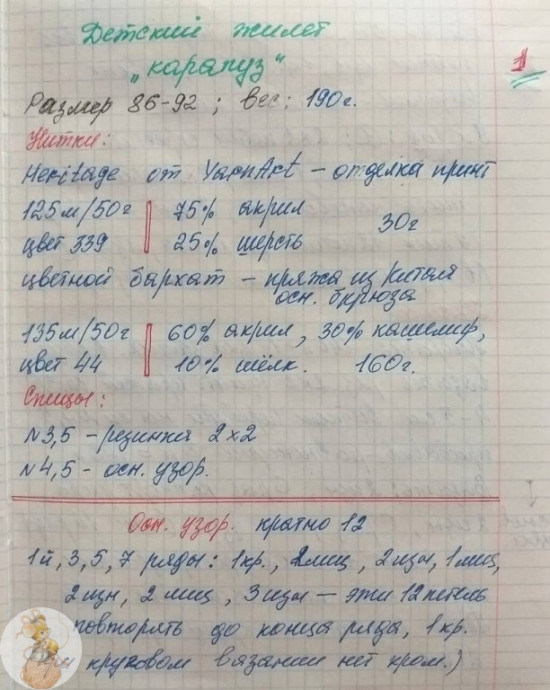 Детский жилет
„карапуз“
1
Размер 86-92 ; вес: 190г.
Нитки:
Heritage от YarnArt – отделка принт
125м/50г 75% акрил 30г
цвет 339 25% шерсть
цветной бархат – пряжа из Китая
осн. бирюза
135м/50г 60% акрил, 30% кашемир,
цвет 44 10% шёлк. 160г.
Спицы:
N3,5 – резинка 2х2
N4,5 – осн. узор.
Осн. узор. кратно 12
1й, 3, 5, 7 ряды: 1кр., 2лиц, 2изн, 1лиц,
2изн, 2лиц, 3изн – эти 12 петель
повторять до конца ряда, 1кр.
круговом вязании нет кром.)